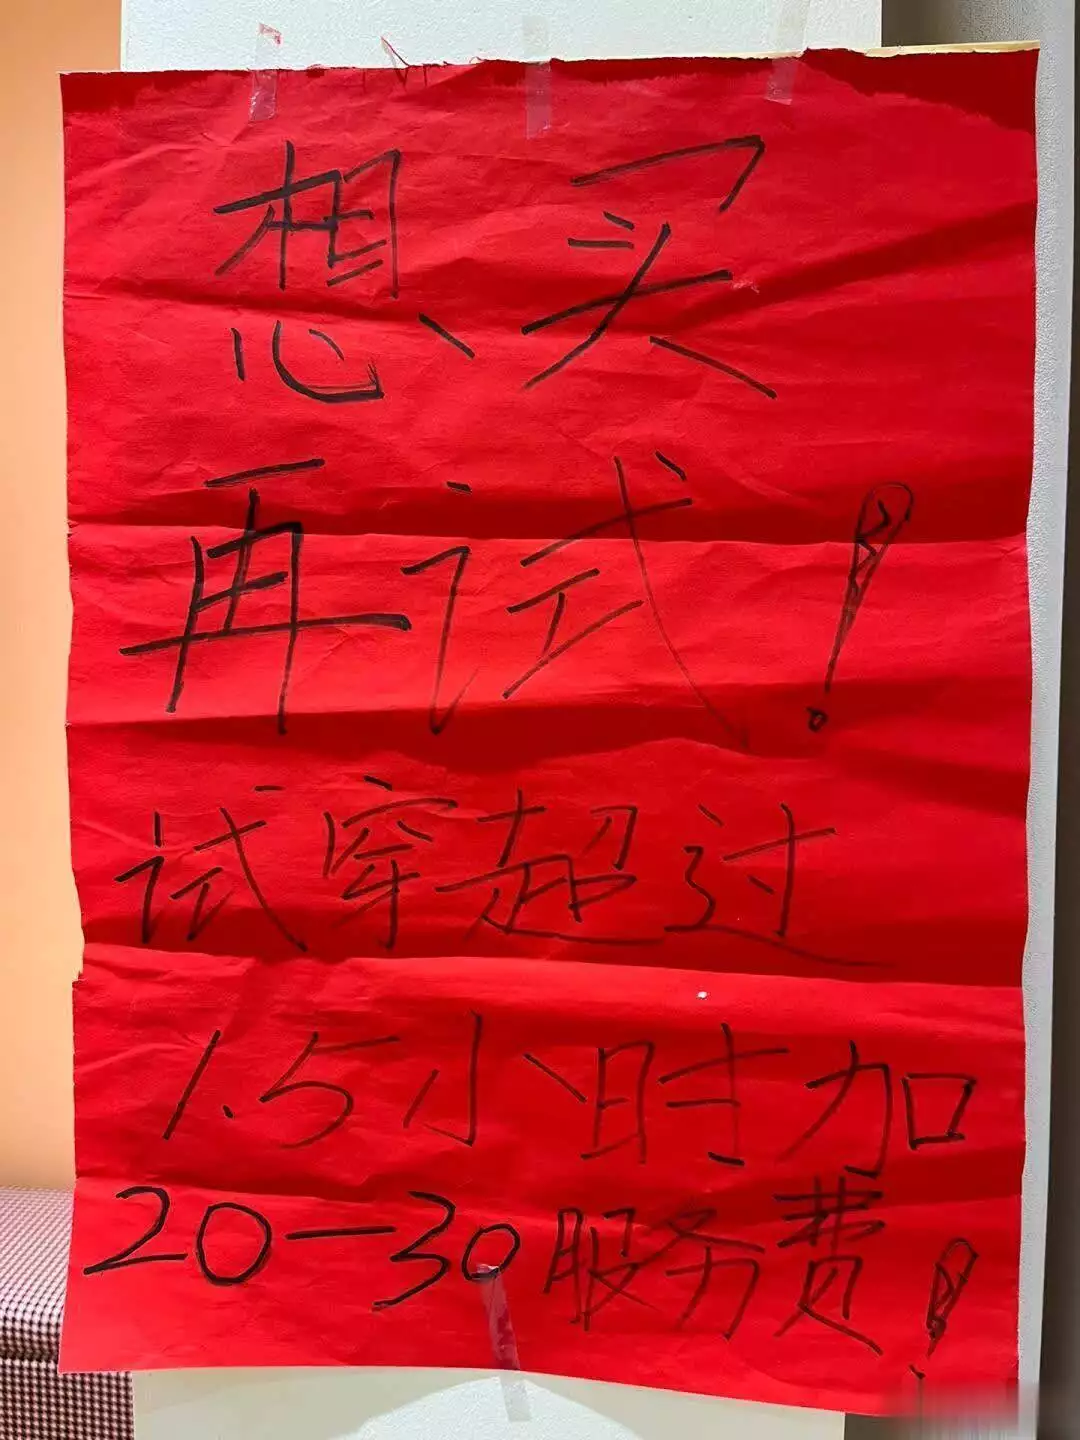 想买
再试!
试穿超过
1.5小时加
20-30服务费!